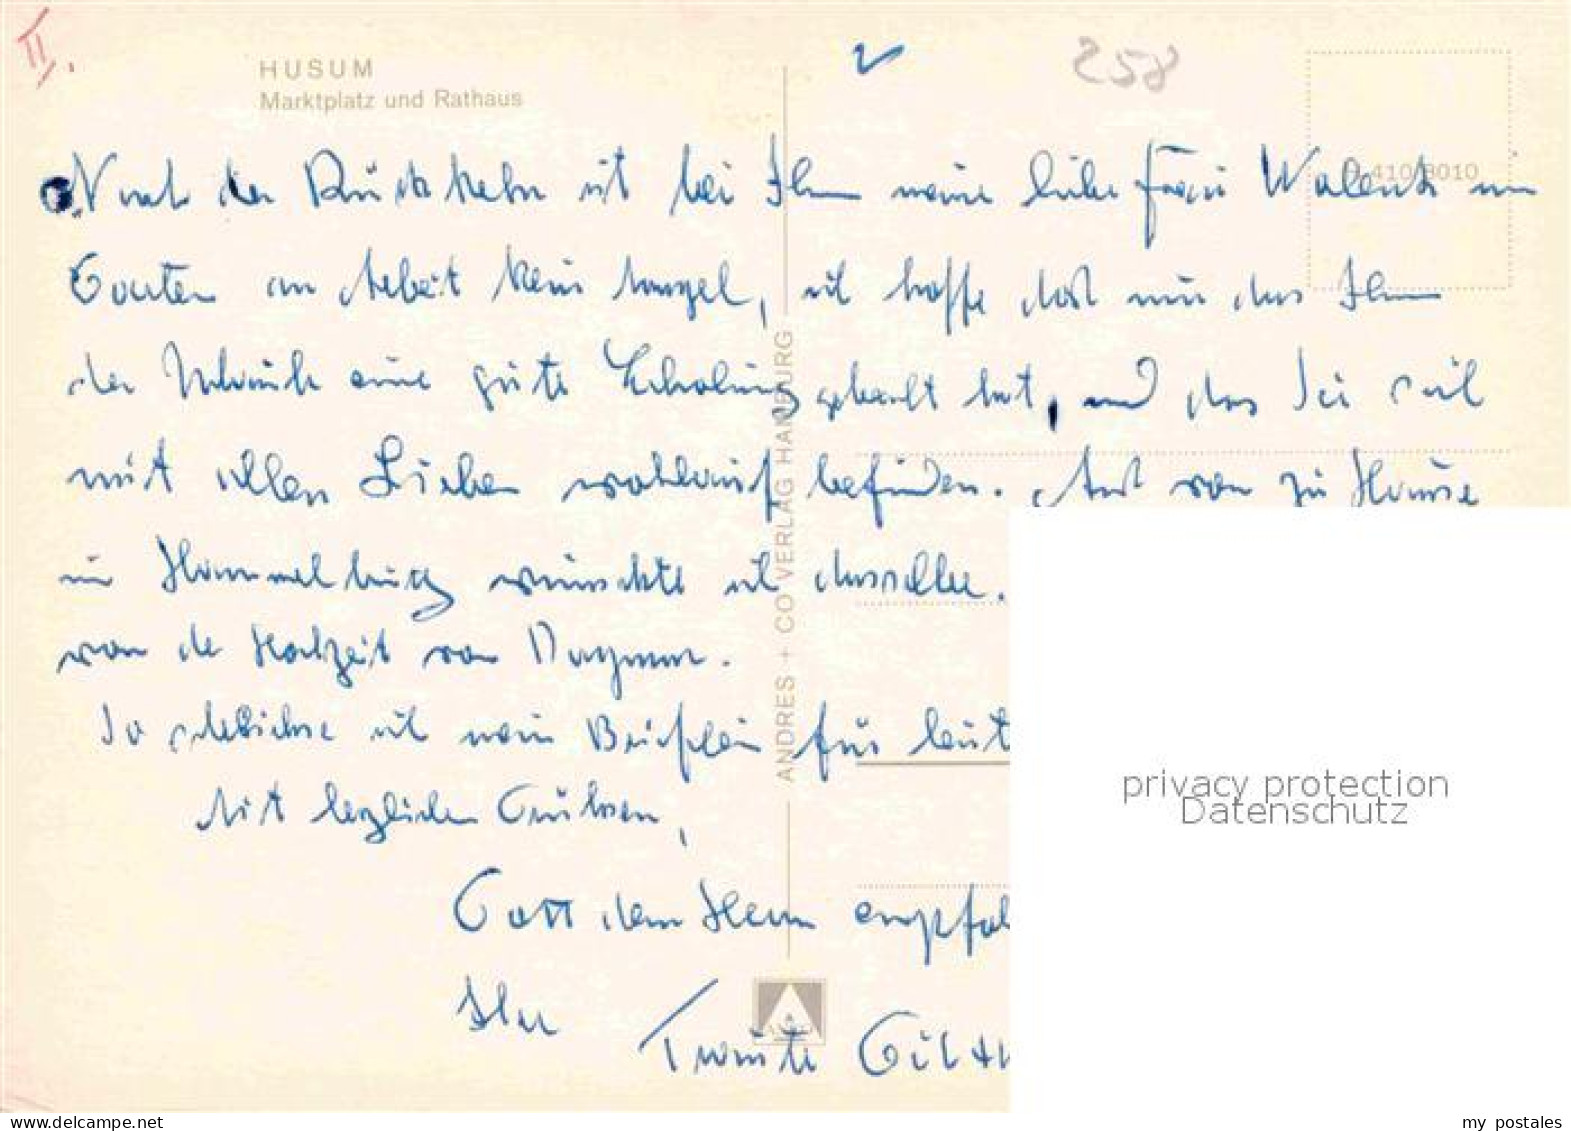 II.
HUSUM
Marktplatz und Rathaus
258
D 410 8010
Nach der Rückkehr ist bei Ihnen meine liebe Frau im
Garten an Arbeit kein Mangel, ich hoffe dass nur das Ihnen
der Urlaub eine gute Erholung gebracht hat, und das Sie sich
mit allen Lieben wohlauf befinden. Auch von zu Hause
in Hammelburg wünschte ich dasselbe.
von der Hochzeit von Dagmar.
So schliesse ich mein Brieflein für heut
Mit herzlichen Grüssen,
Gott dem Herrn empfoh
Ihre
ANDRES + CO VERLAG HAMBURG
privacy protection
Datenschutz
www.delcampe.net
my_postales